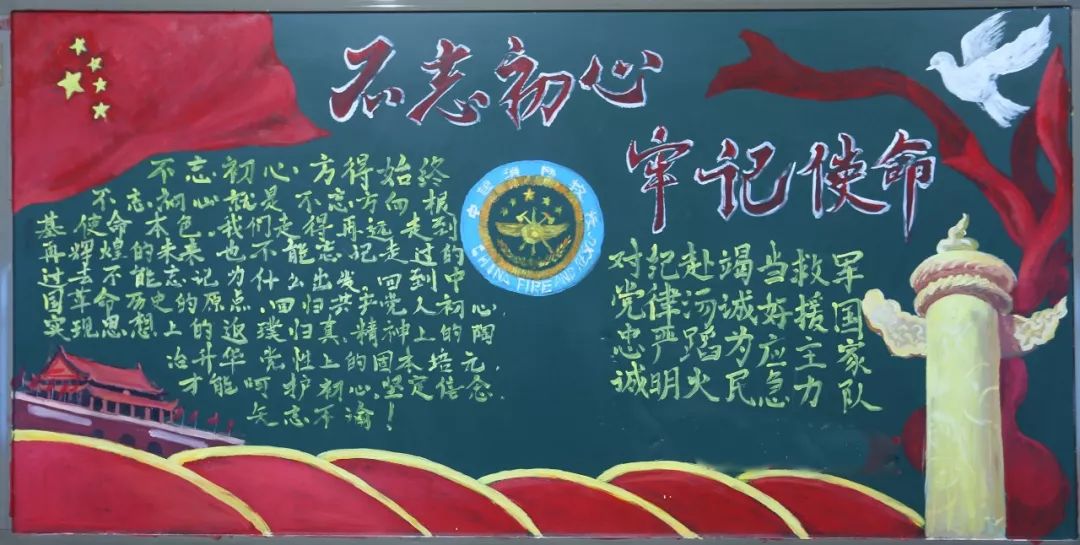 不忘初心
牢记使命
不忘初心·方得始终
不忘初心就是不忘方向·根
基·使命·本色,我们走得再远走到
再辉煌的未来也不能忘记走过的
过去不能忘记为什么出发,回到中
国革命历史的原点,回归共产党人初心,
实现思想上的返璞归真,精神上的陶
冶升华党性上的固本培元,
才能呵护初心,坚定信念,
矢志不渝!
中国消防救援
CHINA FIRE AND
对党忠诚
纪律严明
赴汤蹈火
竭诚为民
当好应急
救援主力
军国家队